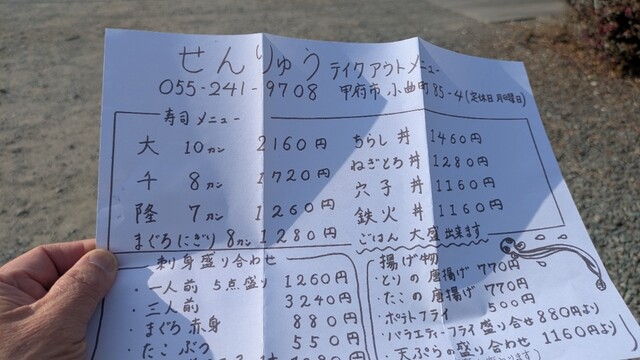 せんりゅう テイクアウトメニュー
055-241-9708 甲府市小曲町85-4(定休日月曜日)
寿司メニュー
大 10カン 2160円
千 8カン 1720円
隆 7カン 1260円
まぐろにぎり 8カン 1280円
ちらし丼 1460円
ねぎとろ丼 1280円
穴子丼 1160円
鉄火丼 1160円
ごはん 大盛出来ます
刺身盛り合わせ
・一人前 5点盛り 1260円
・三人前 3240円
・まぐろ赤身 880円
・たこぶつ 550円
揚げ物
・とりの唐揚げ 770円
・たこの唐揚げ 770円
・ポテトフライ 500円
・バラエティーフライ盛り合せ 880円より
・天ぷら盛り合わせ 1160円より